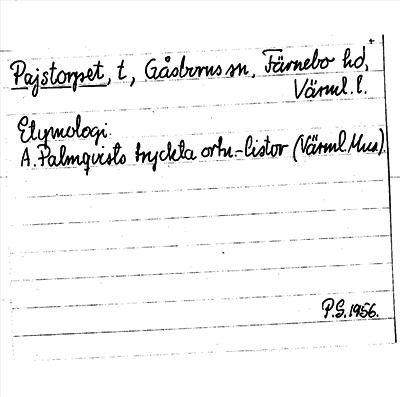 Pajstorpet, t, Gåsborns sn, Färnebo hd,
Värml. l.
Etymologi:
A. Palmqvists tryckta ortn.-listor (Värml. Mus.)
P.G. 1956.